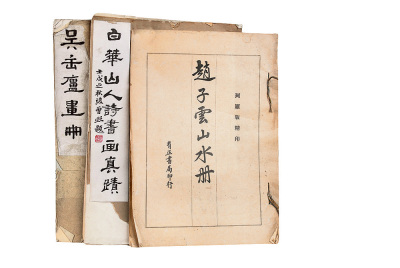 吴岳廬畫冊
白華山人詩書画真蹟
趙子雲山水册
有正書局印行